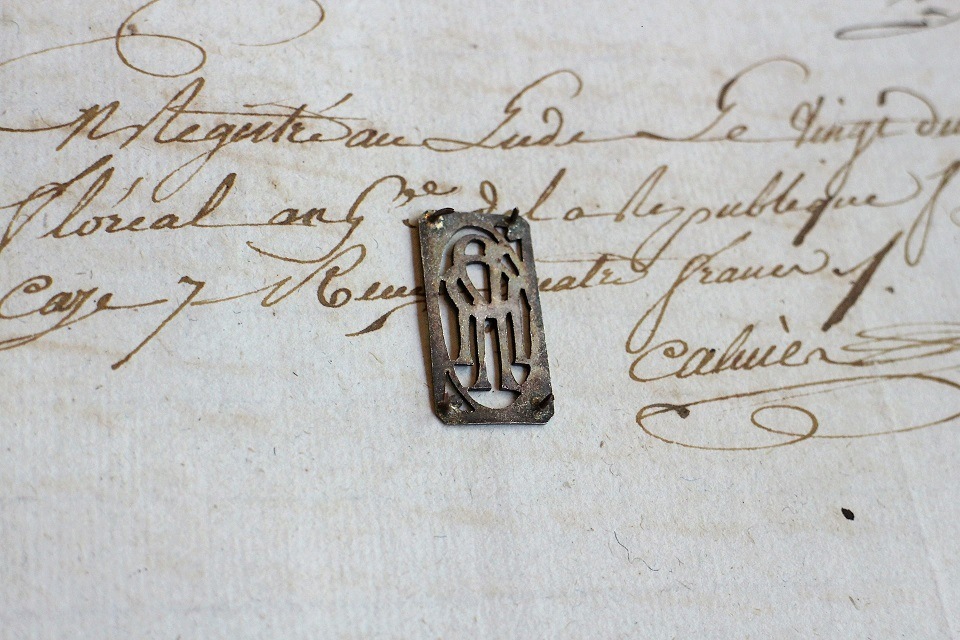 Registré au Lude Le Vingt du
floréal an 6.re de la Republique f
Caze 7 Reçu quatre francs
Cahuier